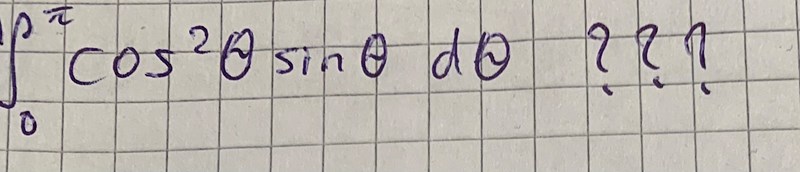 ∫₀^π cos²θ sinθ dθ ???